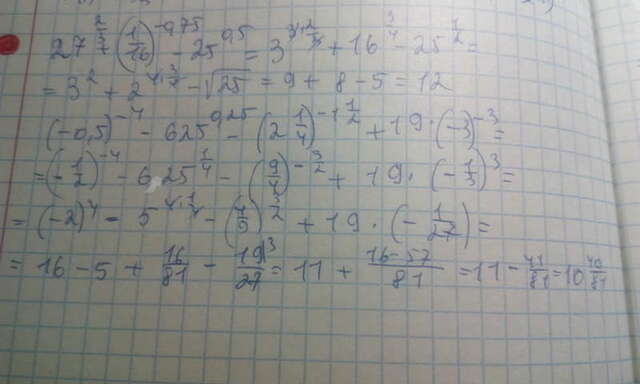 27^(2/3) (1/16)^(-0,75) - 25^(0,5) = 3^(3·2/3) + 16^(3/4) - 25^(1/2) =
= 3^2 + 2^(4·3/4) - √25 = 9 + 8 - 5 = 12
(-0,5)^(-4) - 625^(0,25) - (2 1/4)^(-1 1/2) + 19·(-3)^(-3) =
= (-1/2)^(-4) - 625^(1/4) - (9/4)^(-3/2) + 19·(-1/3)^3 =
= (-2)^4 - 5^(4·1/4) - (4/9)^(3/2) + 19·(-1/27) =
= 16 - 5 + 16/81 - 19/27 = 11 + (16-57)/81 = 11 - 41/81 = 10 40/81